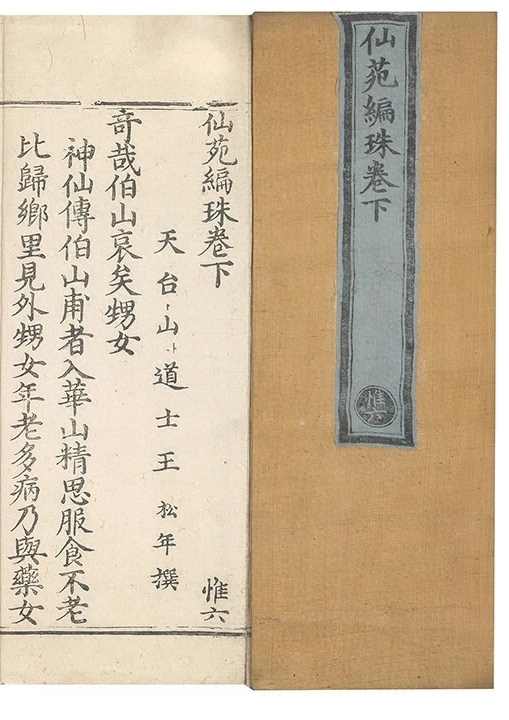 仙苑編珠卷下
惟六
仙苑編珠卷下 惟六
天台山道士王松年撰
奇哉伯山哀矣甥女
神仙傳伯山甫者入華山精思服食不老
比歸鄉里見外甥女年老多病乃與藥女